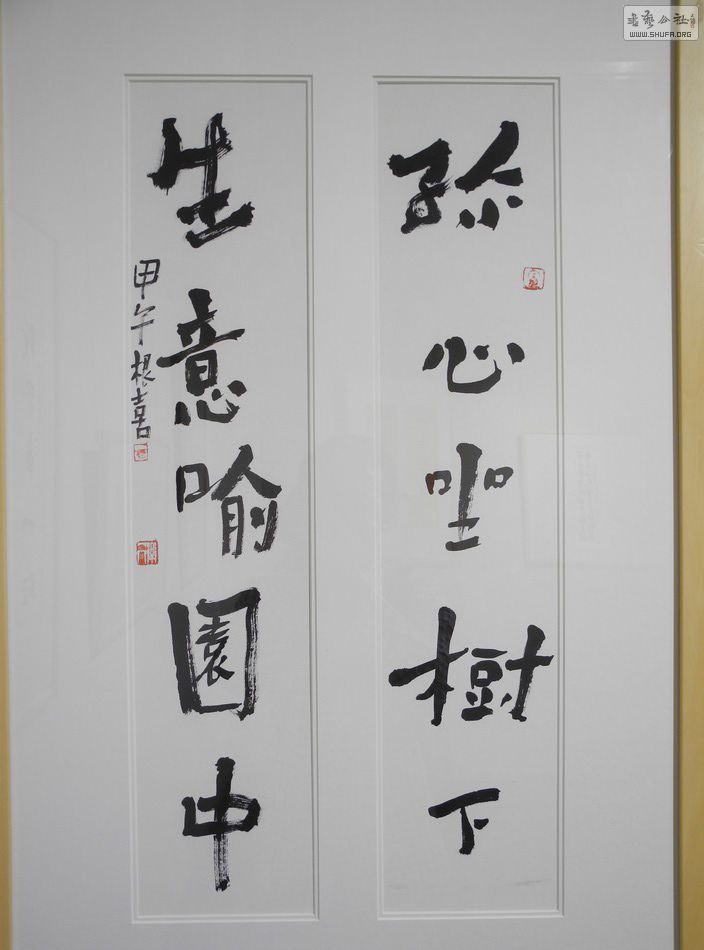 弥心坐树下
生意喻園中
甲午根喜
書藝公社
WWW.SHUFA.ORG